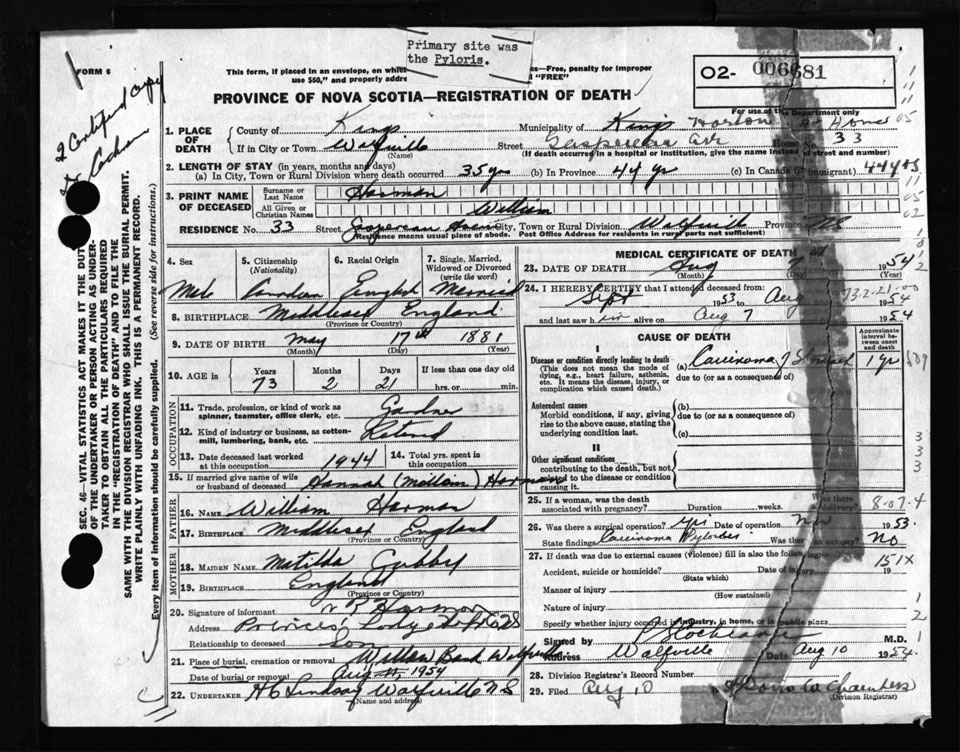 Primary site was
the Pyloris.
FORM 6
This form, if placed in an envelope, on which
use $50," and properly addre
s—Free, penalty for improper
"FREE"
02- 006681
PROVINCE OF NOVA SCOTIA—REGISTRATION OF DEATH
For use of Department only
2 Certified copy
Dr Cochran
SEC. 46—VITAL STATISTICS ACT MAKES IT THE DUT
OF THE UNDERTAKER OR PERSON ACTING AS UNDER-
TAKER TO OBTAIN ALL THE PARTICULARS REQUIRED
IN THE "REGISTRATION OF DEATH" AND TO FILE THE
SAME WITH THE DIVISION REGISTRAR WHO SHALL ISSUE THE BURIAL PERMIT.
WRITE PLAINLY WITH UNFADING INK. THIS IS A PERMANENT RECORD.
Every item of information should be carefully supplied. (See reverse side for instructions.)
1. PLACE OF DEATH
County of Kings Municipality of Kings Horton
If in City or Town Wolfville Street Gaspereau Ave House No. 33
(Name) (If death occurred in a hospital or institution, give the name instead of street and number)
2. LENGTH OF STAY (in years, months and days)
(a) In City, Town or Rural Division where death occurred 35 yrs (b) In Province 44 yr (c) In Canada (if immigrant) 44 yrs
3. PRINT NAME OF DECEASED
Surname or Last Name Harman
All Given or Christian Names William
RESIDENCE No. 33 Street Gasperau Aven City, Town or Rural Division Wolfville Province NS
(Residence means usual place of abode. Post Office Address for residents in rural parts not sufficient)
4. Sex Male
5. Citizenship (Nationality) Canadian
6. Racial Origin English
7. Single, Married, Widowed or Divorced (write the word) Married
8. BIRTHPLACE Middlesex England
(Province or Country)
9. DATE OF BIRTH May 17th 1881
(Month) (Day) (Year)
10. AGE in Years 73 Months 2 Days 21 If less than one day old hrs. or min.
OCCUPATION
11. Trade, profession, or kind of work as spinner, teamster, office clerk, etc. Gardner
12. Kind of industry or business, as cotton-mill, lumbering, bank, etc. Retired
13. Date deceased last worked at this occupation 1944 14. Total yrs. spent in this occupation
15. If married give name of wife or husband of deceased Hannah (Millam) Harman
FATHER
16. NAME William Harman
17. BIRTHPLACE Middlesex England
(Province or Country)
MOTHER
18. MAIDEN NAME Matilda Gubby
19. BIRTHPLACE England
(Province or Country)
20. Signature of informant Harman
Address Princes Lodge
Relationship to deceased Son
21. Place of burial, cremation or removal Willow Bank Wolfville
Date of burial or removal Aug 11, 1954
22. UNDERTAKER H C Lindsay Wolfville N S
(Name and address)
MEDICAL CERTIFICATE OF DEATH
23. DATE OF DEATH Aug 7 1954
(Month) (Day) (Year)
24. I HEREBY CERTIFY that I attended deceased from:
Sept 1953 to Aug 1954
and last saw him alive on Aug 7 1954
CAUSE OF DEATH
Approximate interval between onset and death
I
Disease or condition directly leading to death
(This does not mean the mode of dying, e.g., heart failure, asthenia, etc. It means the disease, injury, or complication which caused death.
(a) Carcinoma of Stomach 1 yr
due to (or as a consequence of)
Antecedent causes
Morbid conditions, if any, giving rise to the above cause, stating the underlying condition last.
(b)
due to (or as a consequence of)
(c)
II
Other significant conditions
contributing to the death, but not related to the disease or condition causing it.
25. If a woman, was the death associated with pregnancy? Duration weeks. Was there delivery?
8-07-4
26. Was there a surgical operation? yes Date of operation Nov 1953.
State findings Carcinoma Pylorus Was there an autopsy? No
27. If death was due to external causes (violence) fill in also the following:
151X
Accident, suicide or homicide? Date of injury 19
(State which)
Manner of injury
(How sustained)
Nature of injury
Specify whether injury occurred in industry, in home, or in public place
Signed by Cochrane M.D.
Address Wolfville Date Aug 10 1954.
28. Division Registrar's Record Number
29. Filed Aug 10
(Division Registrar)